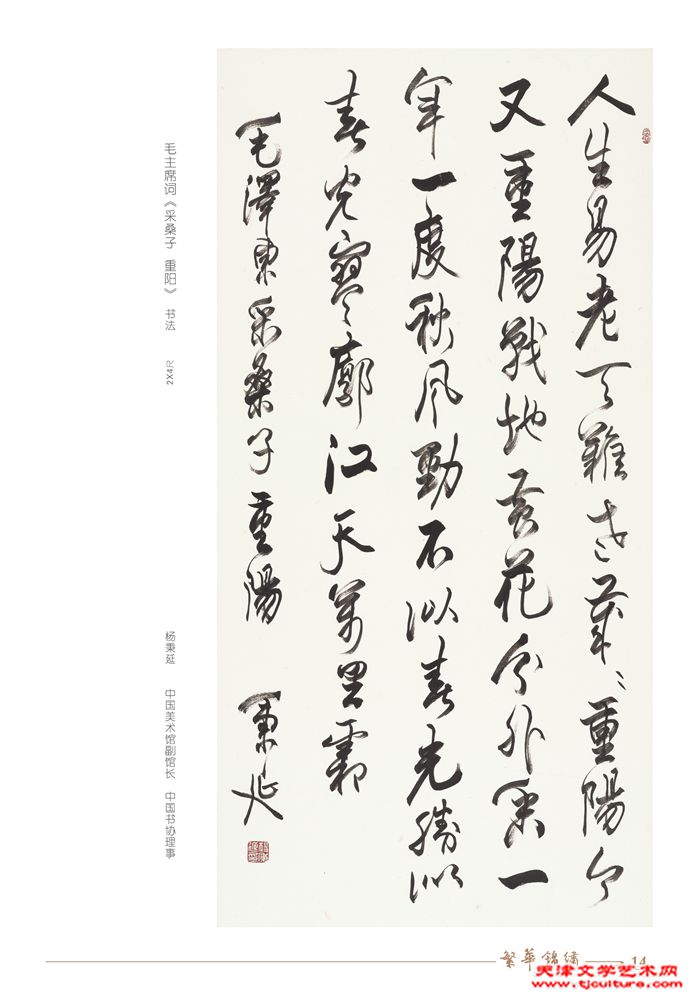 人生易老天難老歲〻重陽今
又重陽戰地黄花分外香一
年一度秋风勁不似春光勝似
春光寥廓江天萬里霜
毛澤東采桑子重陽 秉延
毛主席词《采桑子 重阳》 书法 2X4尺
杨秉延 中国美术馆副馆长 中国书协理事
繁華錦繡 14
天津文学艺术网
www.tjculture.com